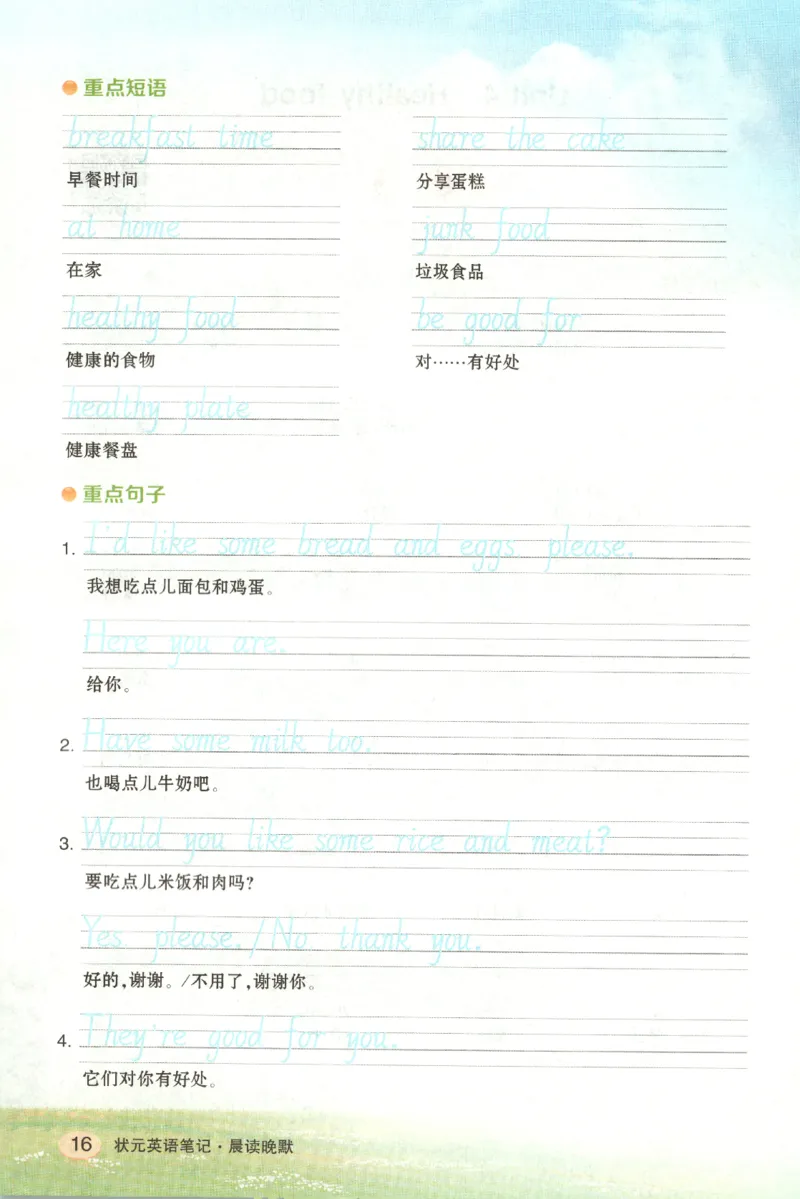 重点短语
breakfast time
早餐时间
share the cake
分享蛋糕
at home
在家
junk food
垃圾食品
healthy food
健康的食物
be good for
对……有好处
healthy plate
健康餐盘
重点句子
1. I'd like some bread and eggs, please.
我想吃点儿面包和鸡蛋。
Here you are.
给你。
2. Have some milk too.
也喝点儿牛奶吧。
3. Would you like some rice and meat?
要吃点儿米饭和肉吗?
Yes, please./No, thank you.
好的,谢谢。/不用了,谢谢你。
4. They're good for you.
它们对你有好处。
16 状元英语笔记·晨读晚默